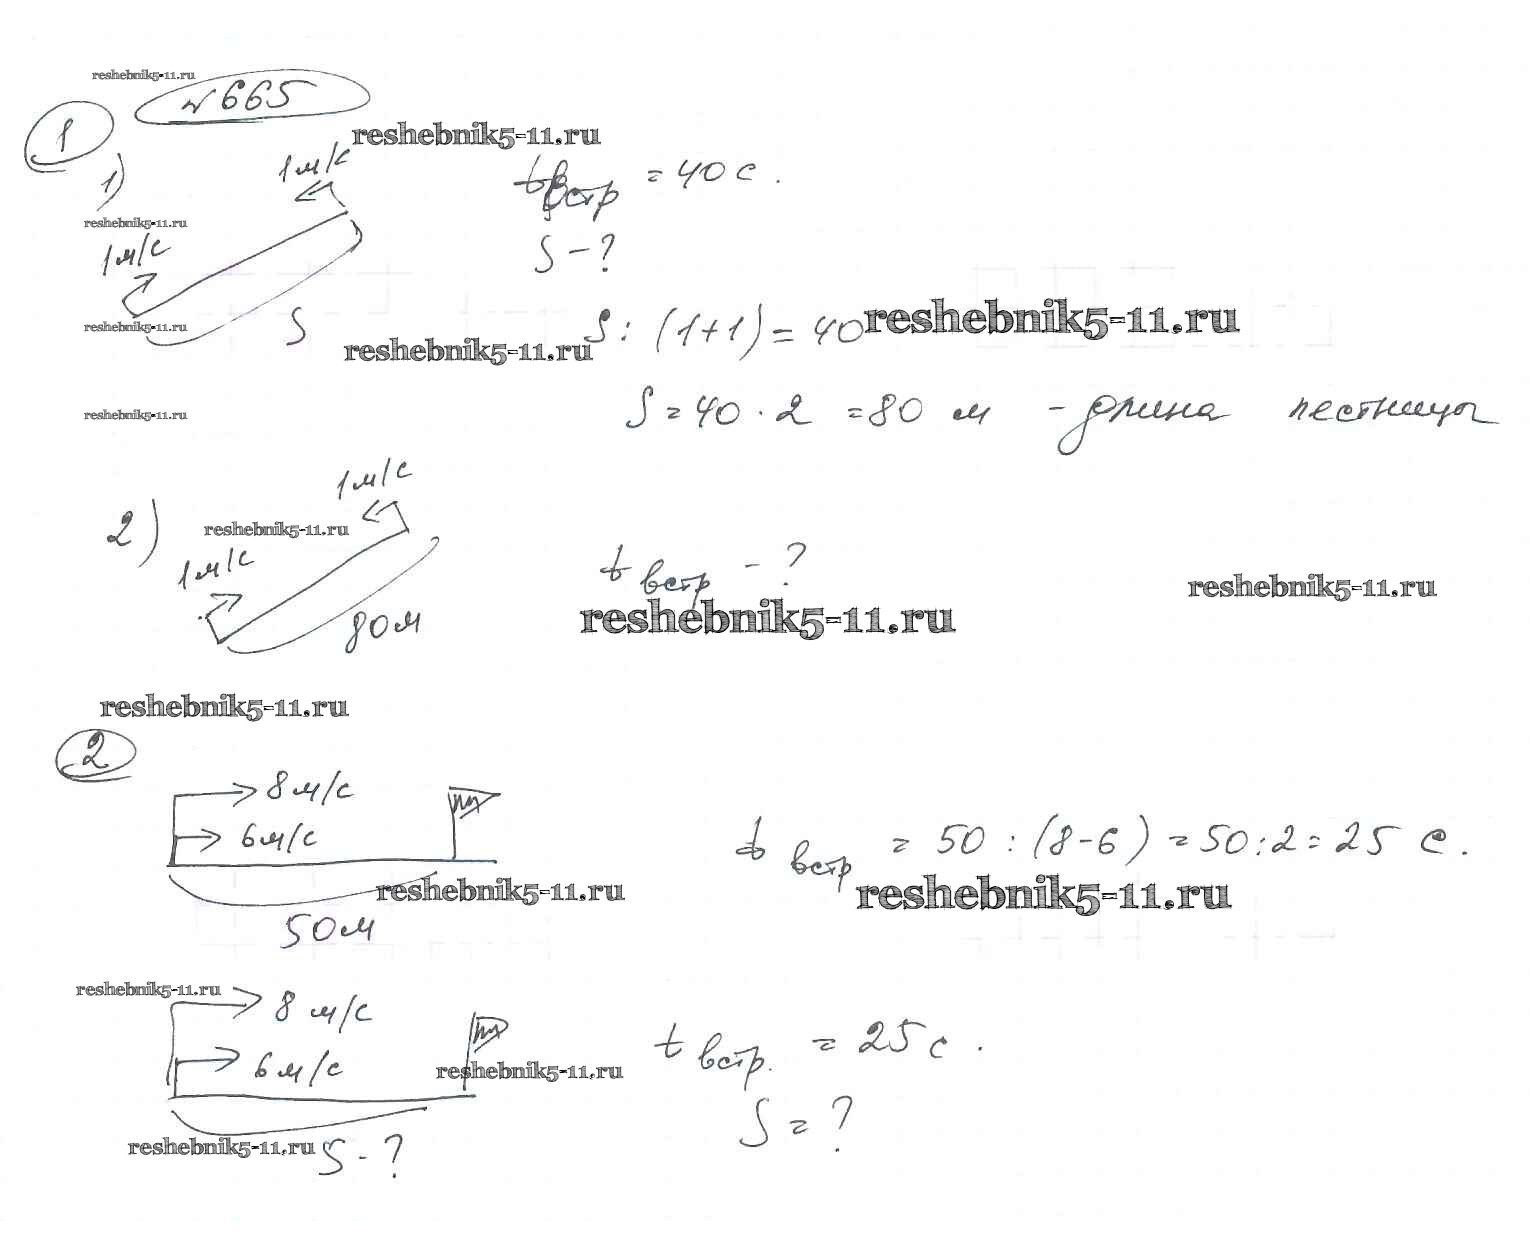 reshebnik5-11.ru
№665
1
reshebnik5-11.ru
1)
1м/с
tвстр = 40 с.
reshebnik5-11.ru
1м/с
S - ?
reshebnik5-11.ru
S
S : (1+1) = 40
reshebnik5-11.ru
reshebnik5-11.ru
reshebnik5-11.ru
S = 40 · 2 = 80 м - длина лестницы
2)
1м/с
reshebnik5-11.ru
1м/с
t встр - ?
reshebnik5-11.ru
80м
reshebnik5-11.ru
reshebnik5-11.ru
2
8 м/с
6м/с
t встр = 50 : (8-6) = 50:2 = 25 с.
reshebnik5-11.ru
reshebnik5-11.ru
50м
reshebnik5-11.ru
8 м/с
6 м/с
t встр. = 25 с.
reshebnik5-11.ru
S = ?
reshebnik5-11.ru
S - ?